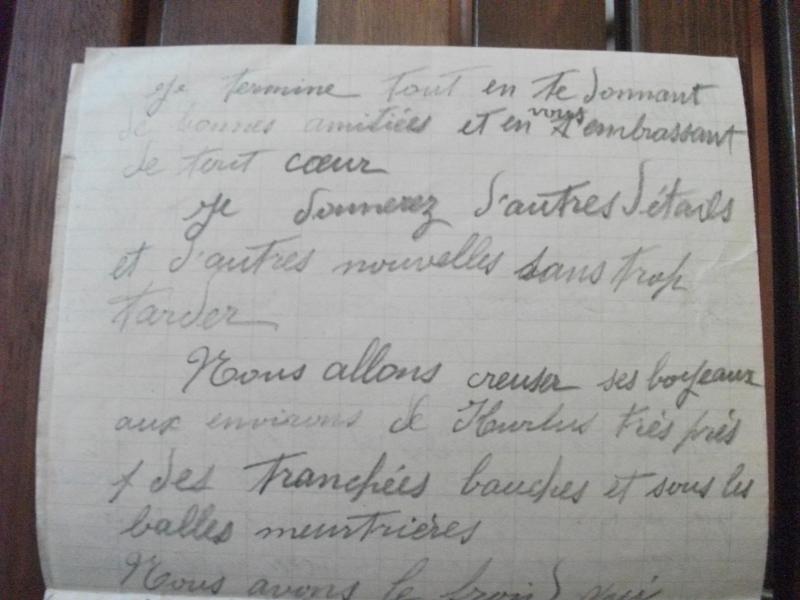 Je termine tout en te donnant
de bonnes amitiées et en vous t'embrassant
de tout cœur
Je donnerez d'autres détails
et d'autres nouvelles sans trop
tarder
Nous allons creuser ses boyeaux
aux environs de Hurlus très près
des tranchées bauches et sous les
balles meurtrières
Nous avons le froid qui